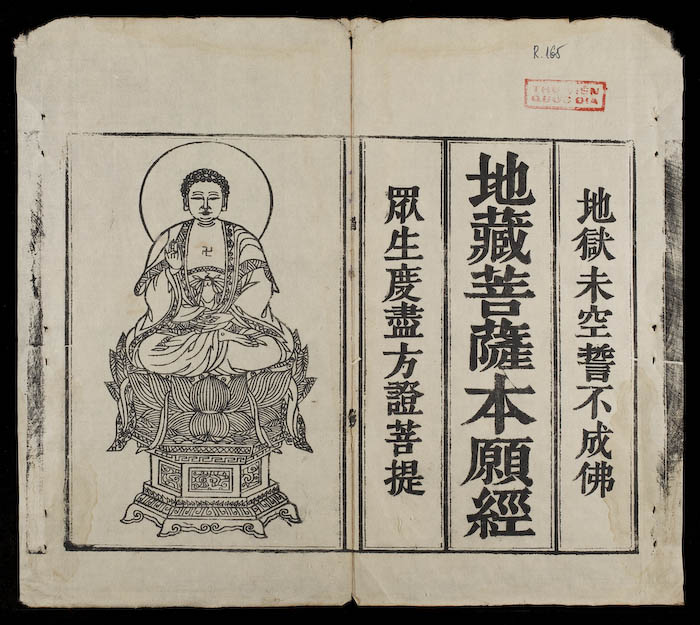 R.165
THƯ VIỆN
QUỐC GIA
地獄未空誓不成佛
地藏菩薩本願經
眾生度盡方證菩提